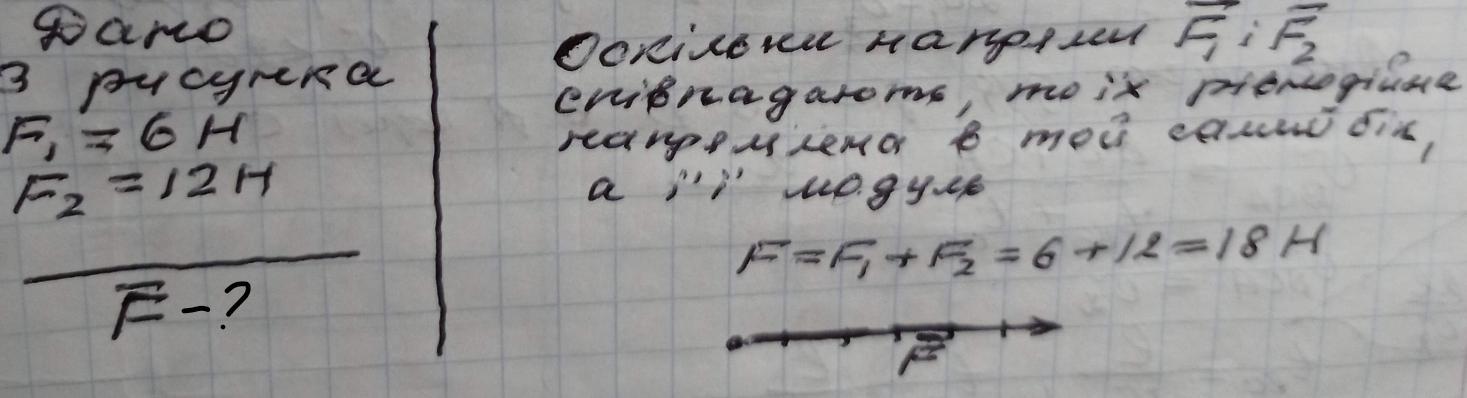 Дано
З рисунка
F₁ = 6 Н
F₂ = 12 Н
F̅ – ?
Оскільки напрями F̅₁ і F̅₂
співпадають, то їх рівнодійна
напрямлена в той самий бік,
а її модуль
F = F₁ + F₂ = 6 + 12 = 18 Н
F̅